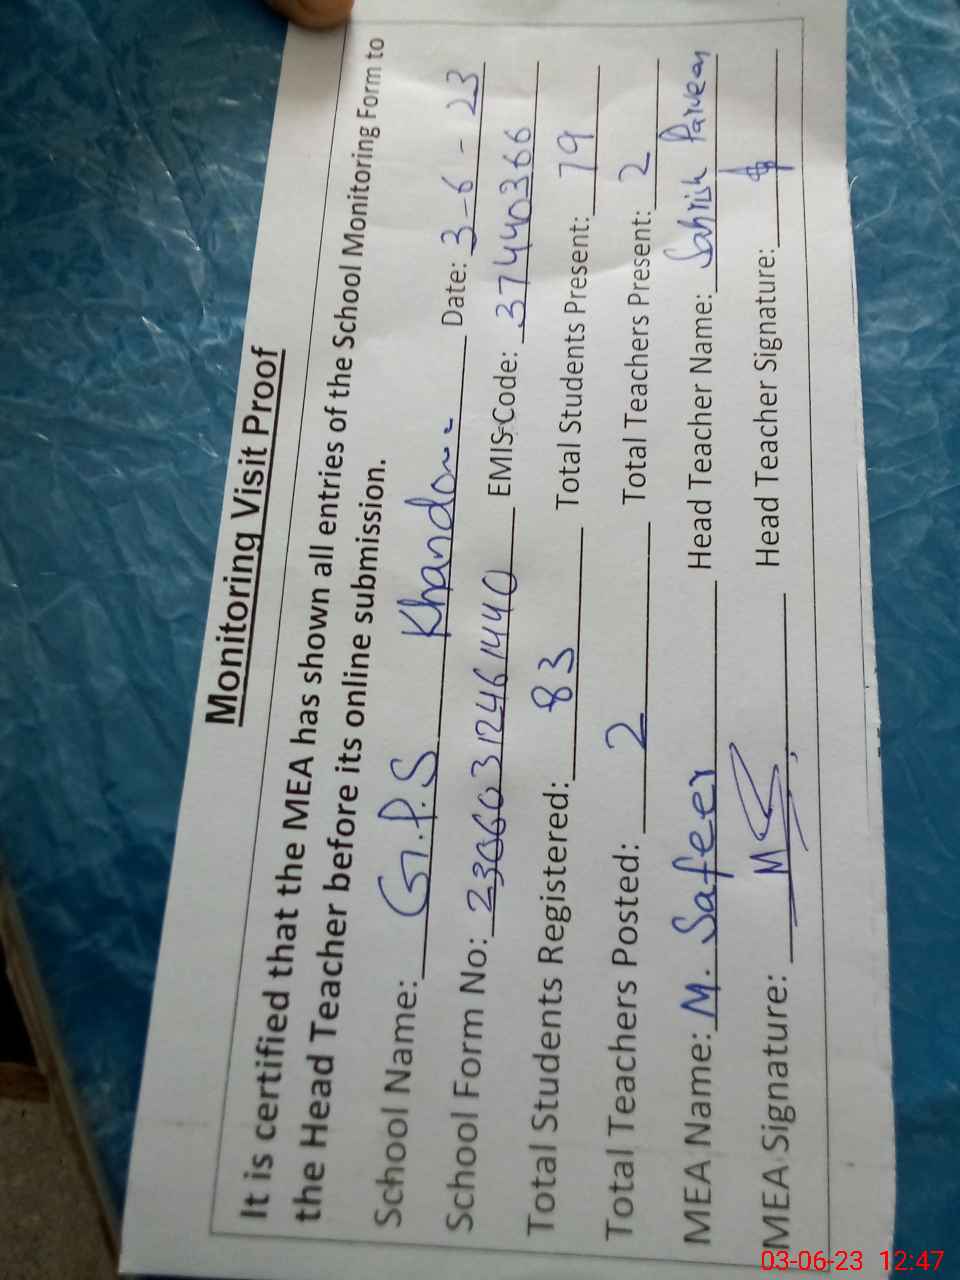 Monitoring Visit Proof
It is certified that the MEA has shown all entries of the School Monitoring Form to
the Head Teacher before its online submission.
School Name: G.P.S Khandoa Date: 3-6-23
School Form No: 23060312461440 EMIS Code: 37440366
Total Students Registered: 83 Total Students Present: 79
Total Teachers Posted: 2 Total Teachers Present: 2
MEA Name: M. Safeer Head Teacher Name: Sahrish Parveen
MEA Signature: Head Teacher Signature:
03-06-23 12:47